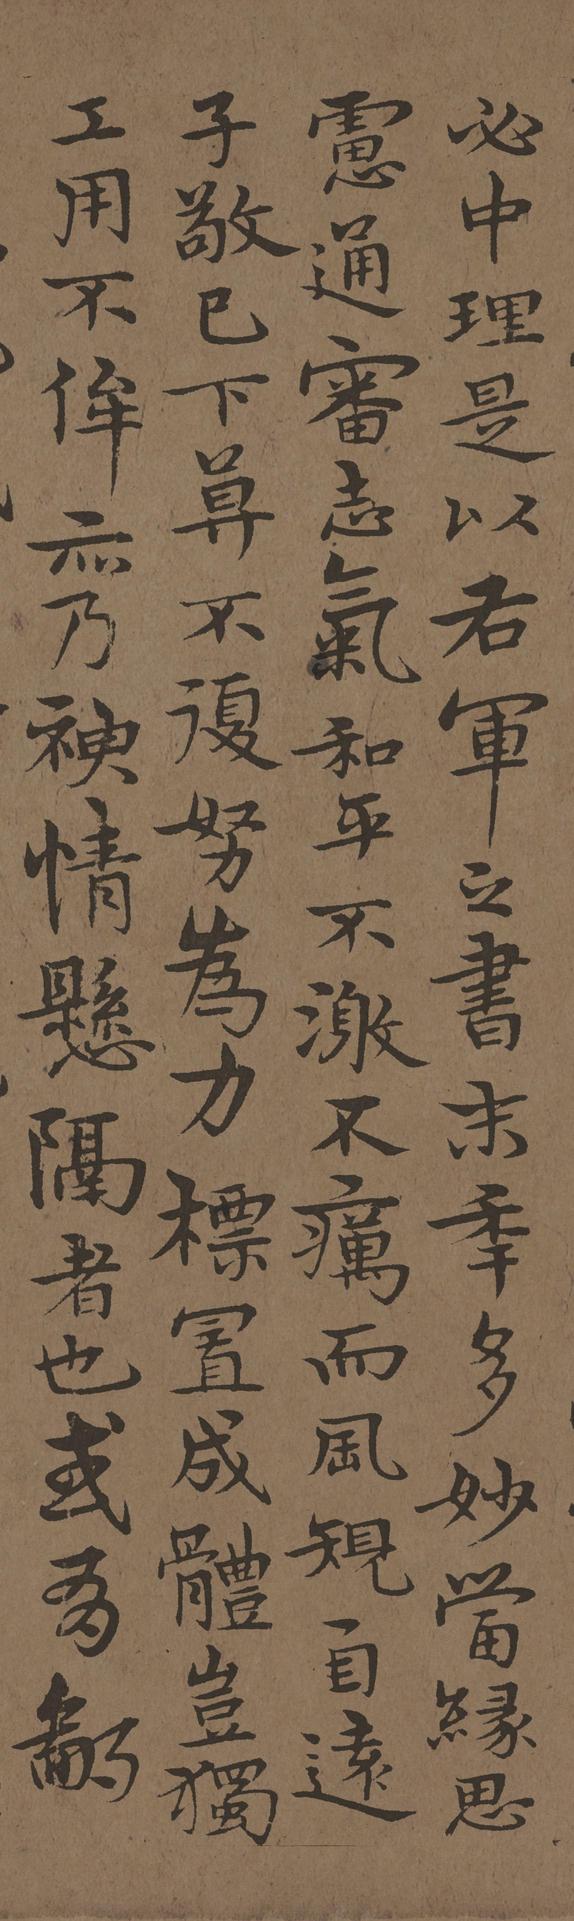 必中理是以右軍之書末秊多妙當緣思
慮通審志氣和平不激不癘而風規自遠
子敬已下莫不復努為力標置成體豈獨
工用不侔亦乃神情懸隔者也或有鄙